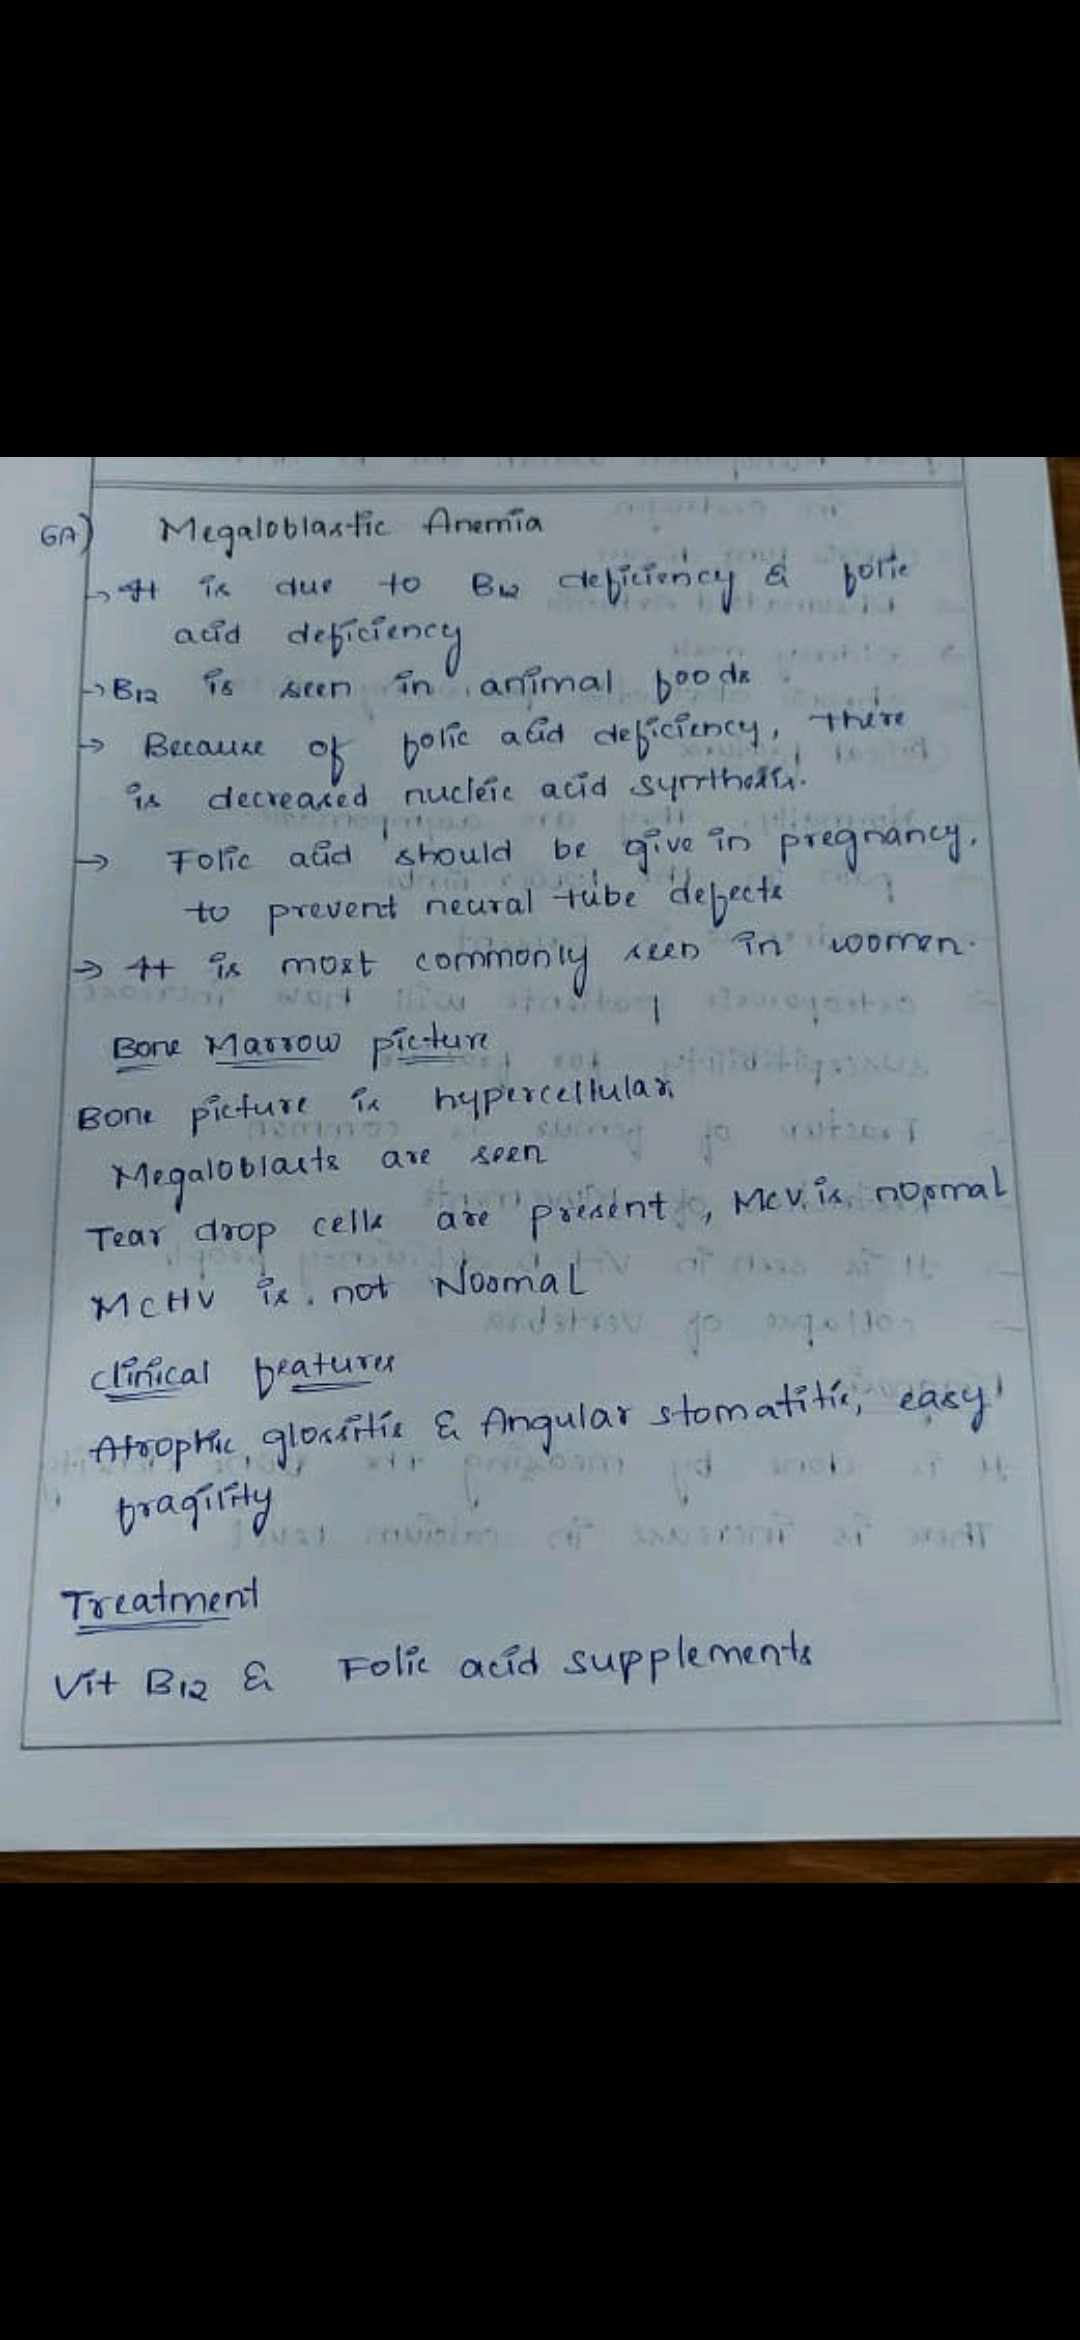 6A) Megaloblastic Anemia
→ It is due to B12 deficiency & folic
acid deficiency
→ B12 is seen in animal foods
→ Because of folic acid deficiency, there
is decreased nucleic acid synthesis.
→ Folic acid should be give in pregnancy,
to prevent neural tube defects
→ It is most commonly seen in women.
Bone Marrow picture
Bone picture is hypercellular
Megaloblasts are seen
Tear drop cells are present, MCV is normal
MCHV is not Normal
clinical features
Atrophic glossitis & Angular stomatitis, easy
fragility
Treatment
Vit B12 & Folic acid supplements